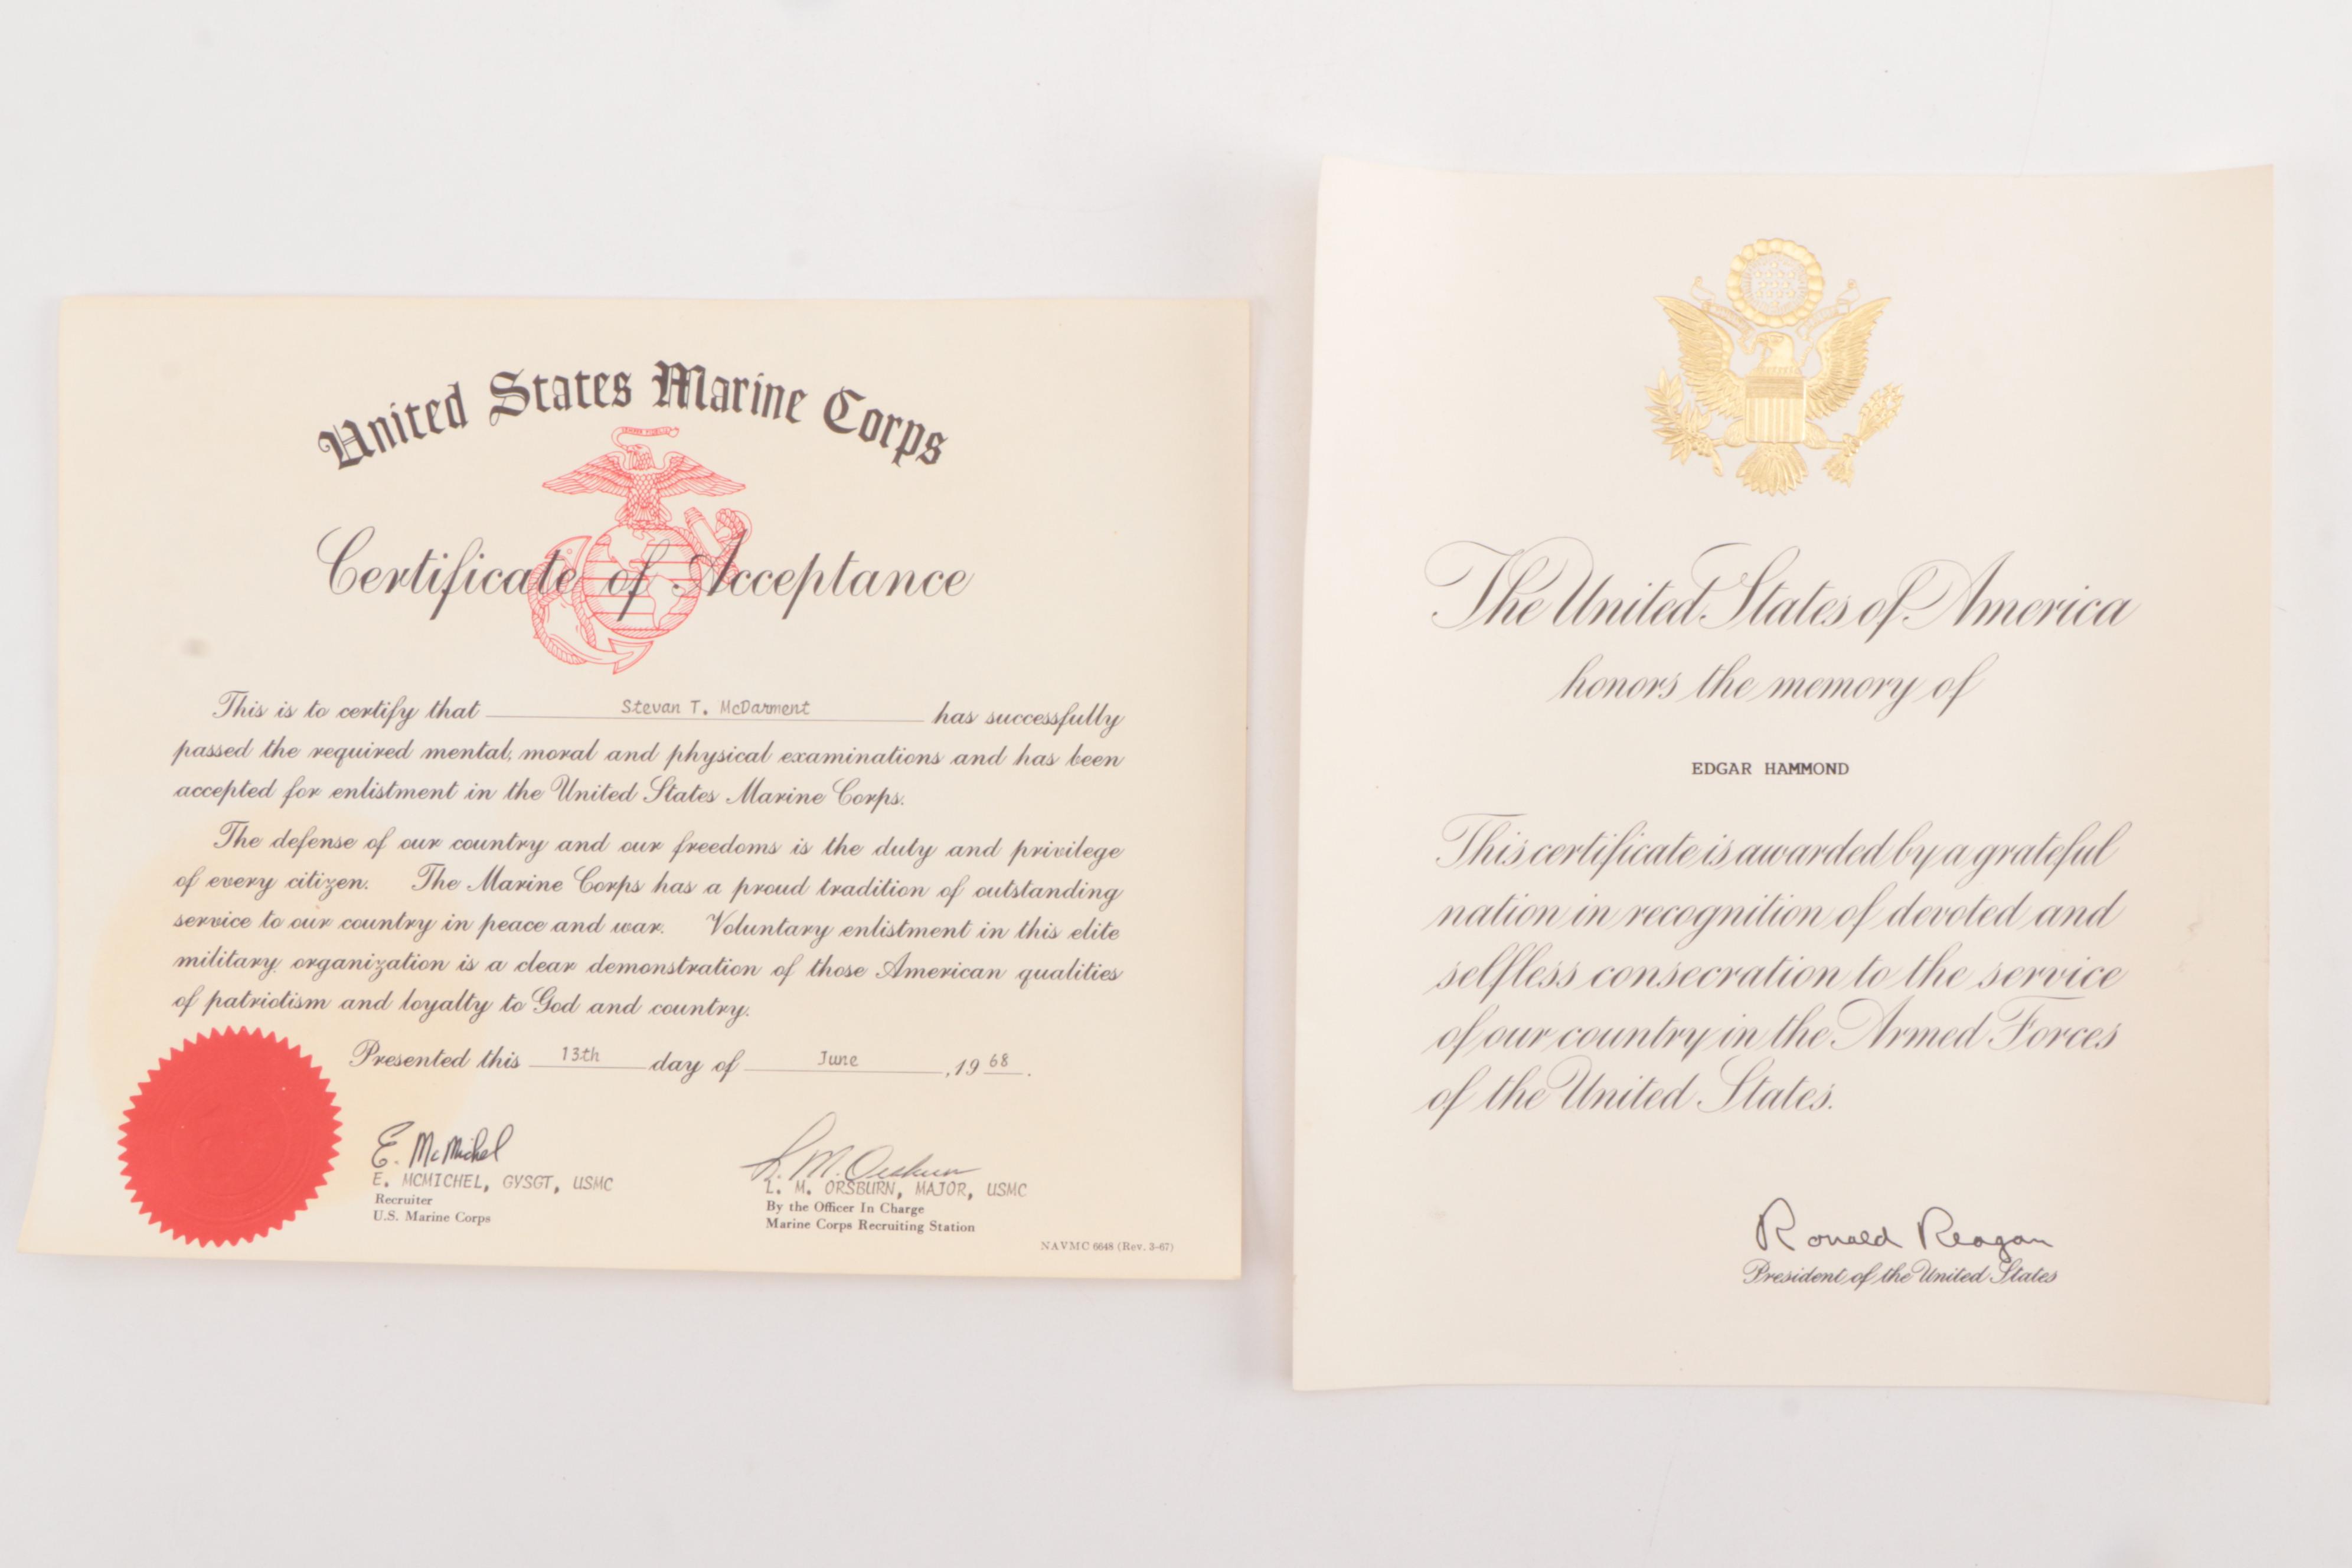 United States Marine Corps
Certificate of Acceptance
This is to certify that Stevan T. McDarment has successfully
passed the required mental, moral and physical examinations and has been
accepted for enlistment in the United States Marine Corps.
The defense of our country and our freedoms is the duty and privilege
of every citizen. The Marine Corps has a proud tradition of outstanding
service to our country in peace and war. Voluntary enlistment in this elite
military organization is a clear demonstration of those American qualities
of patriotism and loyalty to God and country.
Presented this 13th day of June, 1968.
E. McMichel
E. MCMICHEL, GYSGT, USMC
Recruiter
U.S. Marine Corps
L. M. Orsburn
L. M. ORSBURN, MAJOR, USMC
By the Officer In Charge
Marine Corps Recruiting Station
NAVMC 6648 (Rev. 3-67)
The United States of America
honors the memory of
EDGAR HAMMOND
This certificate is awarded by a grateful
nation in recognition of devoted and
selfless consecration to the service
of our country in the Armed Forces
of the United States.
Ronald Reagan
President of the United States